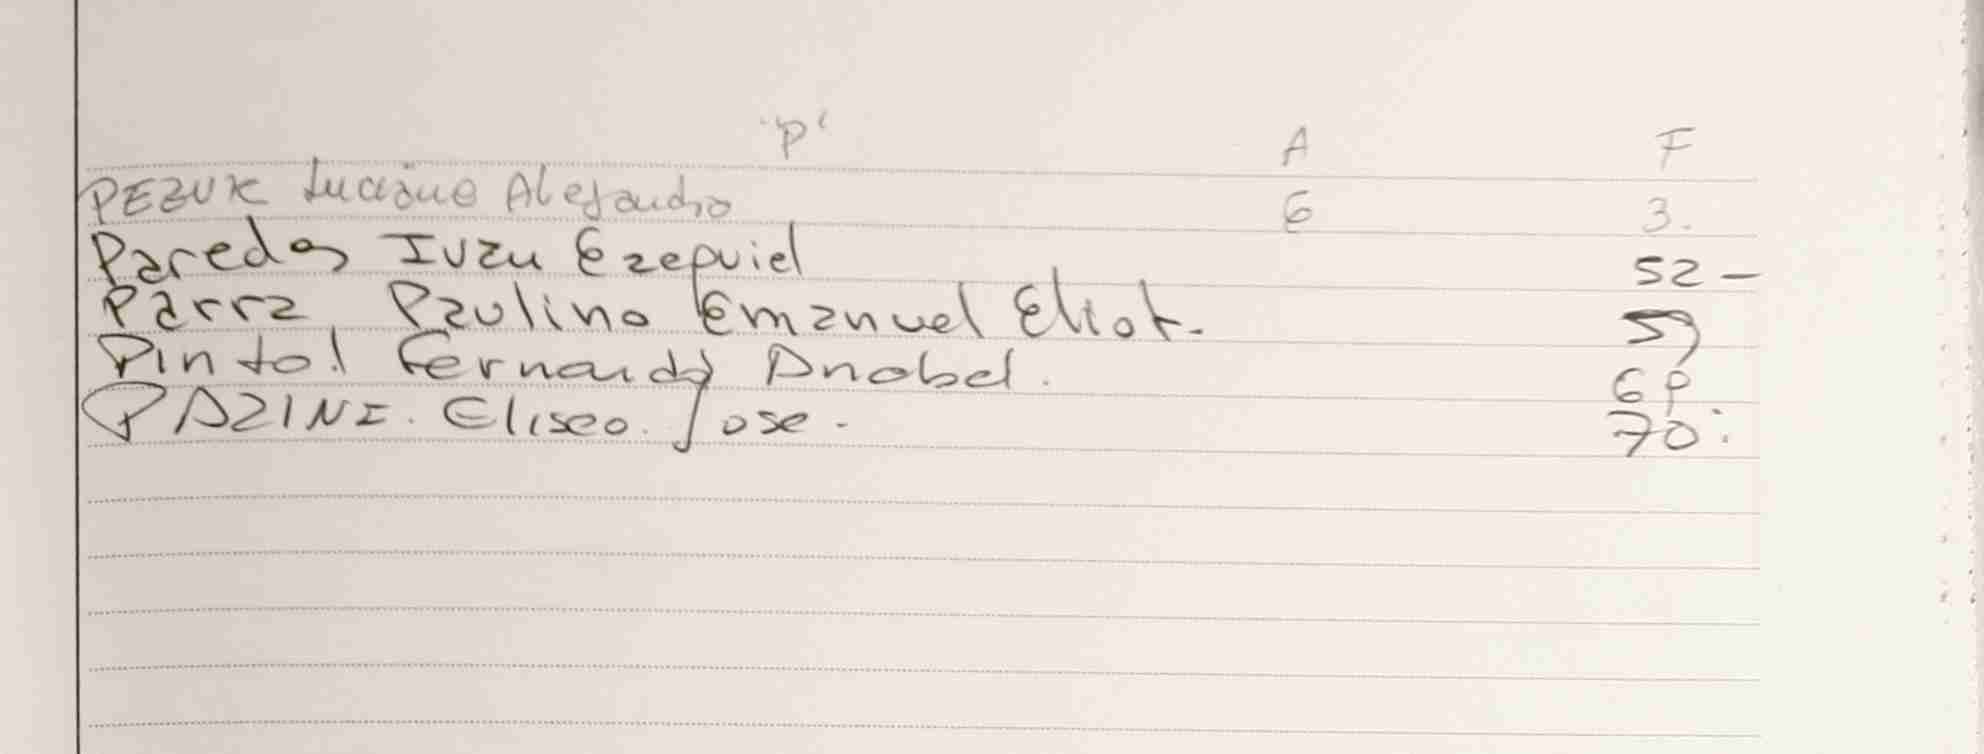 "P" A F
PEZUK Luciano Alejandro 6 3.
Paredes Ivan Ezequiel 52 -
Parra Paulino Emanuel Eliot. 59
Pintol Fernando Anabel. 68
PAZINI. Eliseo. Jose. 70.